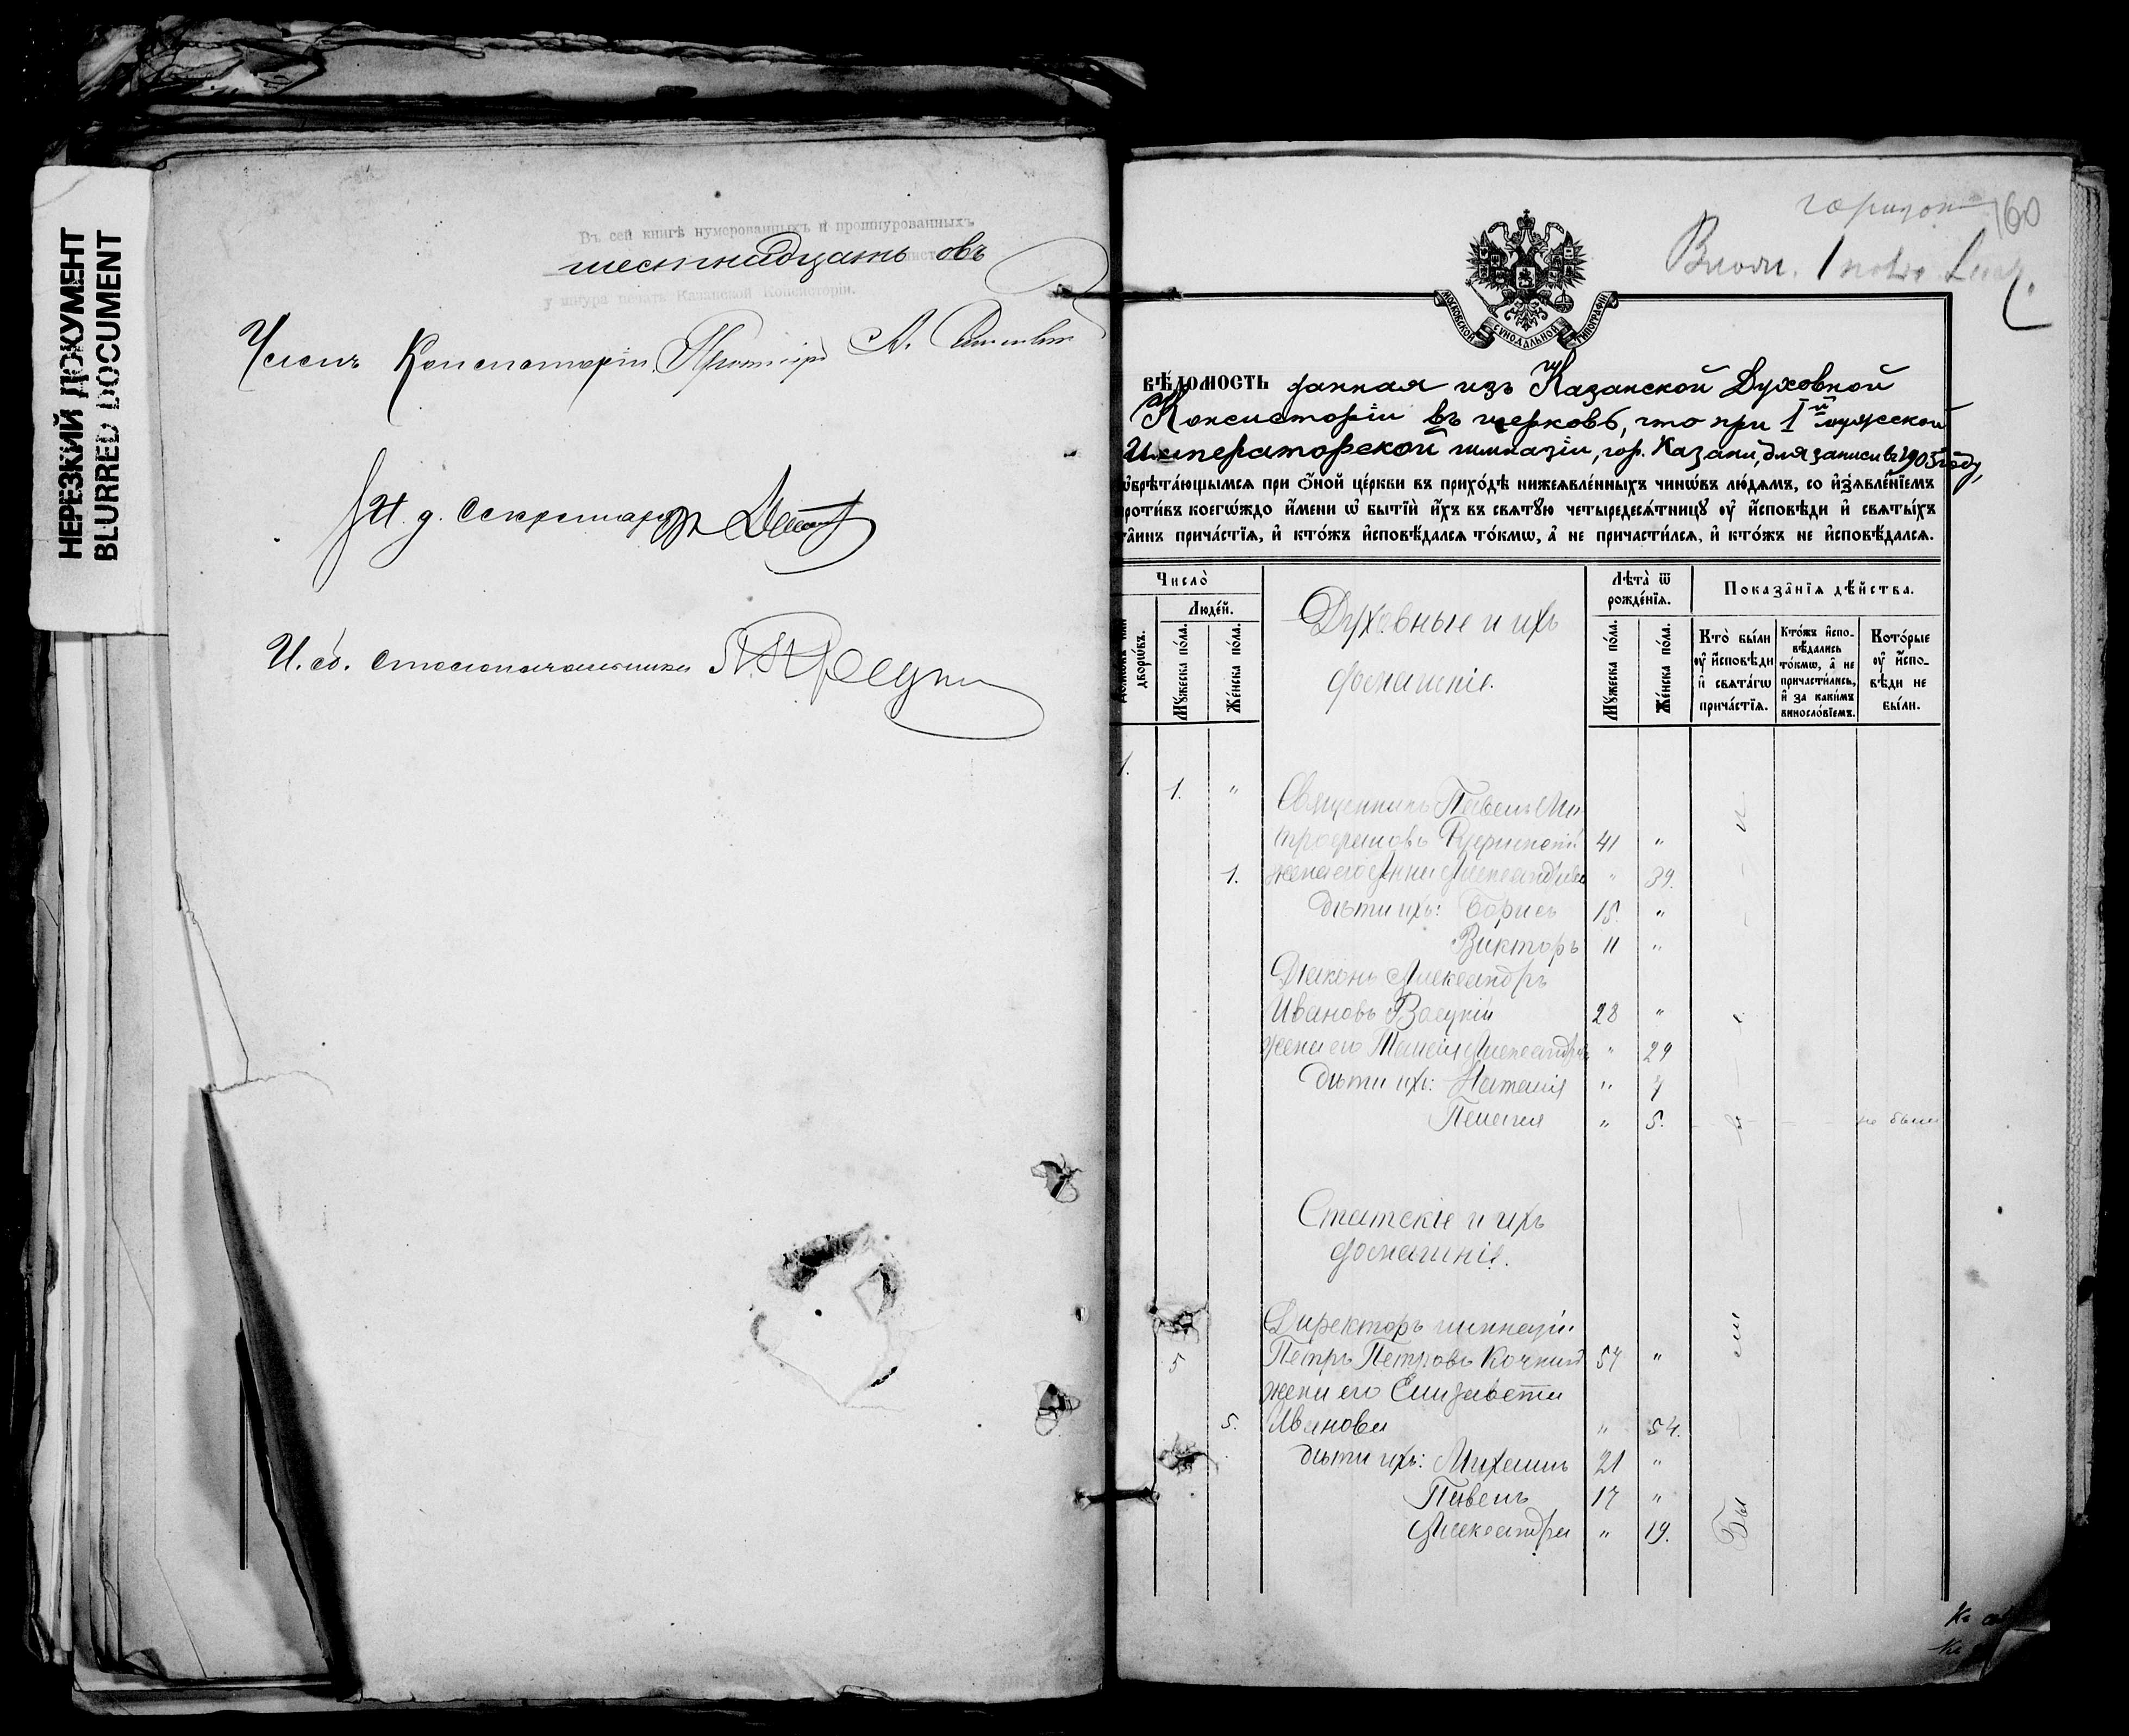 НЕРЕЗКИЙ ДОКУМЕНТ
BLURRED DOCUMENT
Въ сей книгѣ нумерованныхъ и прошнурованныхъ
шестнадцать овъ
у шнура печать Казанской Консисторіи.
Членъ Консисторіи, Протоіерей А.
И. д. Секретаря
И. об. столоначальника
160
МОСКОВСКОЙ СѴНОДАЛЬНОЙ ТИПОГРАФІИ
ВѢ́ДОМОСТЬ данная изъ Казанской Духовной
Консисторіи въ церковь, что при 1й мужской
Императорской гимназіи, гор. Казани, для записи въ 1903 году,
ѡ҆брѣта́ющымсѧ при ѻ҆́ной це́ркви въ прихо́дѣ нижеѧвле́нныхъ чинѡ́въ лю́демъ, со и҆з̾ѧвле́нїемъ
проти́въ коегѡ́ждо и҆́мени ѡ҆ бытїѝ и҆́хъ въ свѧтꙋ́ю четыредесѧ́тницꙋ ᲂу҆ и҆́сповѣди и҆ свѧты́хъ
та̑инъ прича́стїѧ, и҆ кто́жъ и҆сповѣ́далсѧ то́кмѡ, а҆ не причасти́лсѧ, и҆ кто́жъ не и҆сповѣ́далсѧ.
Число̀
Люде́й.
дворѡ́въ.
Мꙋ́жеска по́ла.
Же́нска по́ла.
Духовные и ихъ
домашніе.
Лѣта̀ ѿ рожде́нїѧ.
Мꙋ́жеска по́ла.
Же́нска по́ла.
Показа̑нїѧ дѣ́йства.
Кто̀ бы́ли ᲂу҆ и҆́сповѣди и҆ свѧта́гѡ прича́стїѧ.
Кто́жъ и҆сповѣ́дались то́кмѡ, а҆ не причасти́лись, и҆ за каки́мъ виносло́вїемъ.
Кото́рые ᲂу҆ и҆́сповѣди не бы́ли.
1.
1. " Священникъ Павелъ Ми-
трофановъ 41 "
1. жена его Анна Александрова " 39.
дѣти ихъ: Борисъ 15. "
Викторъ 11 "
Діаконъ Александръ
Ивановъ 28 "
жена его Александрова " 29
дѣти ихъ: Наталія " 7
Пелагія " 5. не были
Статскіе и ихъ
домашніе.
Директоръ гимназіи
5 Петръ Петровъ 57 "
жена его Елизавета
5. Иванова " 54.
дѣти ихъ: Михаилъ 21 "
Павелъ 17 "
Александра " 19.